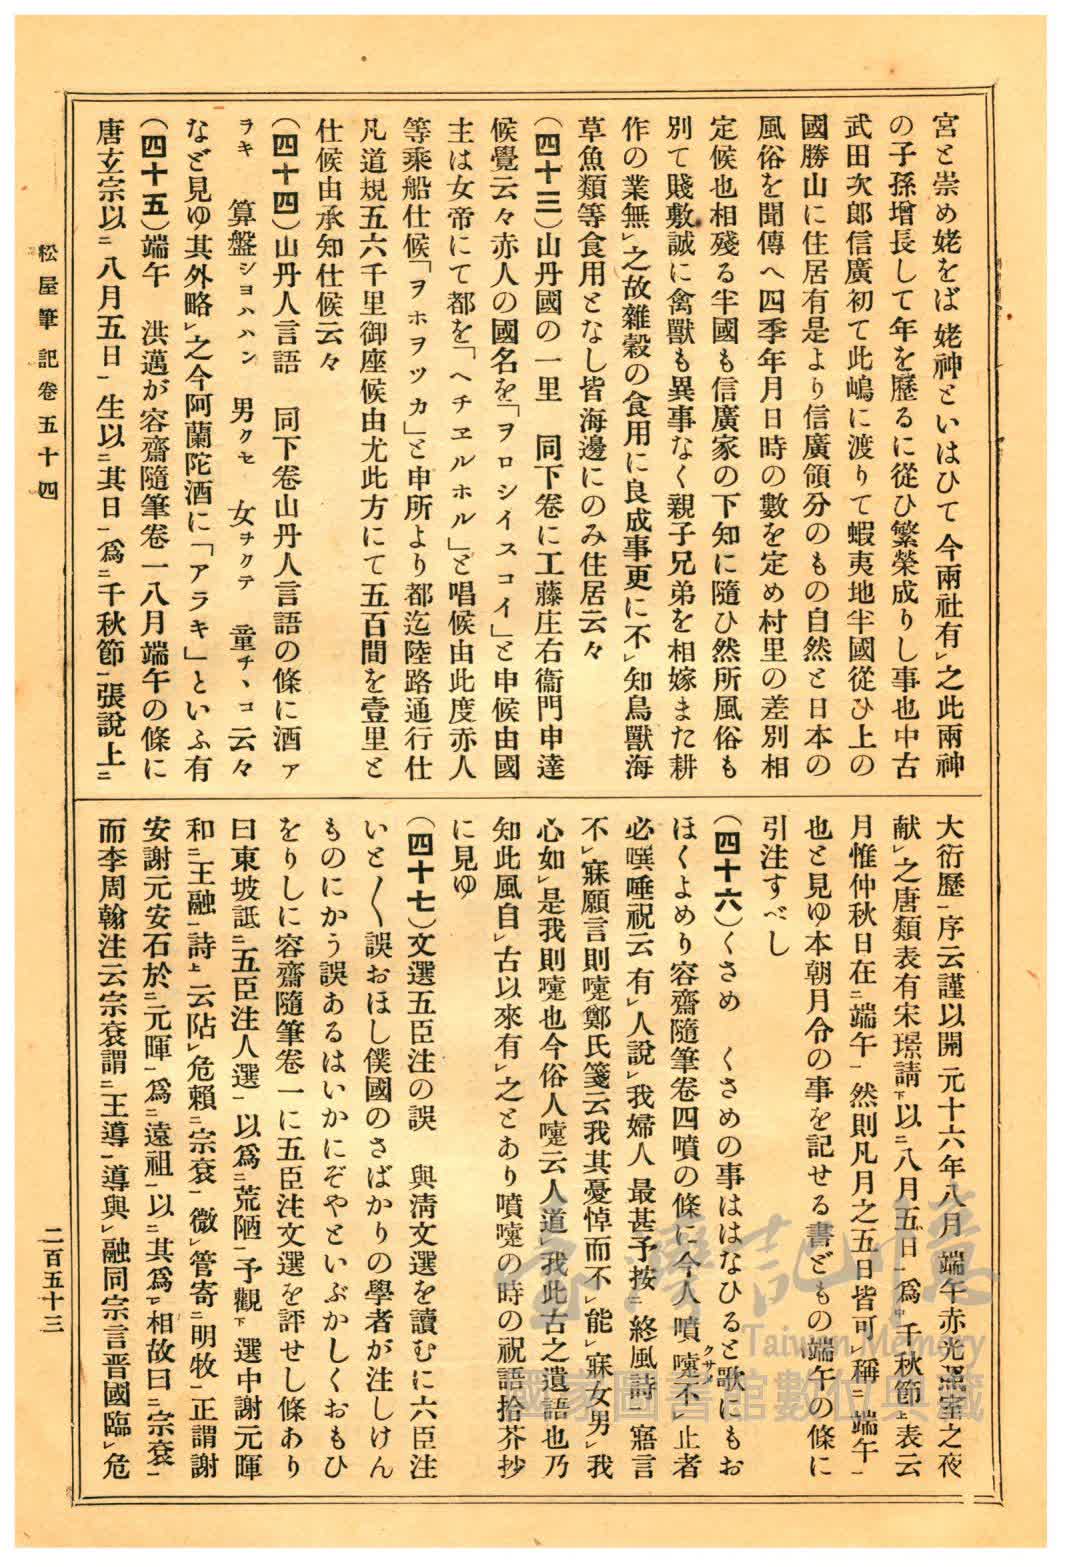 宮と崇め姥をば姥神といはひて今兩社有㆑之此兩神
の子孫增長して年を歷るに從ひ繁榮成りし事也中古
武田次郎信廣初て此嶋に渡りて蝦夷地半國從ひ上の
國勝山に住居有是より信廣領分のもの自然と日本の
風俗を聞傳へ四季年月日時の數を定め村里の差別相
定候也相殘る半國も信廣家の下知に隨ひ然所風俗も
別て賤敷誠に禽獸も異事なく親子兄弟を相嫁また耕
作の業無㆑之故雜穀の食用に良成事更に不㆑知鳥獸海
草魚類等食用となし皆海邊にのみ住居云々
(四十三)山丹國の一里 同下卷に工藤庄右衞門申達
候覺云々赤人の國名を「ヲロシイスコイ」と申候由國
主は女帝にて都を「ヘチヱルホル」と唱候由此度赤人
等乘船仕候「ヲホヲツカ」と申所より都迄陸路通行仕
凡道規五六千里御座候由尤此方にて五百間を壹里と
仕候由承知仕候云々
(四十四)山丹人言語 同下卷山丹人言語の條に酒ァ
ラキ 算盤ショハハン 男クセ 女ヲクテ 童チヽコ云々
など見ゆ其外略㆑之今阿蘭陀酒に「アラキ」といふ有
(四十五)端午 洪邁が容齋隨筆卷一八月端午の條に
唐玄宗以㆓八月五日㆒生以㆓其日㆒爲㆓千秋節㆒張說上㆓
大衍歷㆒序云謹以開元十六年八月端午赤光照室之夜
献㆑之唐類表有宋璟請㆘以㆓八月五日㆒爲㆗千秋節㆖表云
月惟仲秋日在㆓端午㆒然則凡月之五日皆可㆑稱㆓端午㆒
也と見ゆ本朝月令の事を記せる書どもの端午の條に
引注すべし
(四十六)くさめ くさめの事ははなひると歌にもお
ほくよめり容齋隨筆卷四噴の條に今人噴嚏不㆑止者
クサメ
必噀唾祝云有㆑人說㆑我婦人最甚予按㆓終風詩㆒寤言
不㆑寐願言則嚏鄭氏箋云我其憂悼而不㆑能㆑寐女男㆑我
心如㆑是我則嚏也今俗人嚏云人道㆑我此古之遺語也乃
知此風自㆑古以來有㆑之とあり噴嚏の時の祝語拾芥抄
に見ゆ
(四十七)文選五臣注の誤 與淸文選を讀むに六臣注
いと〳〵誤おほし僕國のさばかりの學者が注しけん
ものにかう誤あるはいかにぞやといぶかしくおもひ
をりしに容齋隨筆卷一に五臣注文選を評せし條あり
曰東坡詆㆓五臣注人選㆒以爲㆓荒陋㆒予觀㆘選中謝元暉
和㆓王融㆒詩㆖云阽㆑危賴㆓宗袞㆒微㆑管寄㆓明牧㆒正謂謝
安謝元安石於㆓元暉㆒爲㆓遠祖㆒以㆓其爲㆒㆑相故曰㆓宗袞㆒
而李周翰注云宗袞謂㆓王導㆒導與㆑融同宗言晋國臨㆑危
松屋筆記卷五十四
二百五十三
臺灣記憶
Taiwan Memory
國家圖書館數位典藏